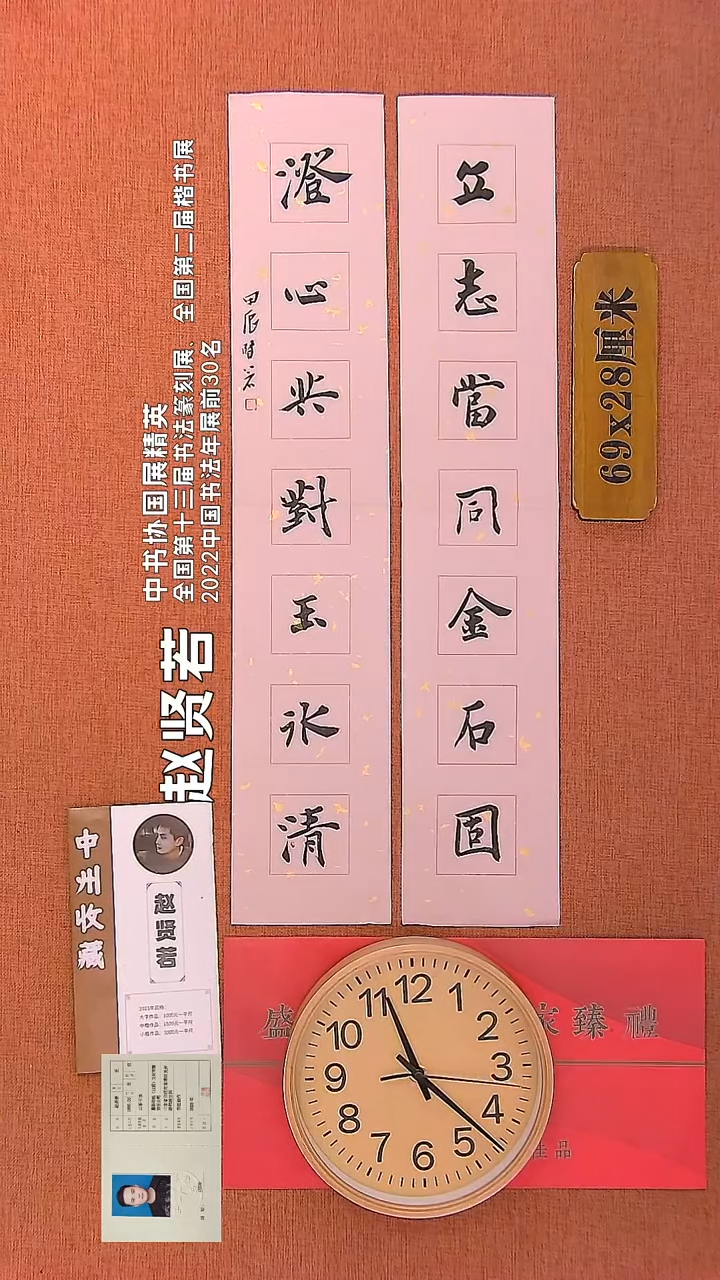 立志當同金石固
澄心共對玉氷清
甲辰
69x28厘米
中书协国展精英
全国第十三届书法篆刻展、全国第二届楷书展
2022中国书法年展前30名
赵贤若
赵贤若
盛 家臻禮
佳品
12 1 2 3 4 5 6 7 8 9 10 11